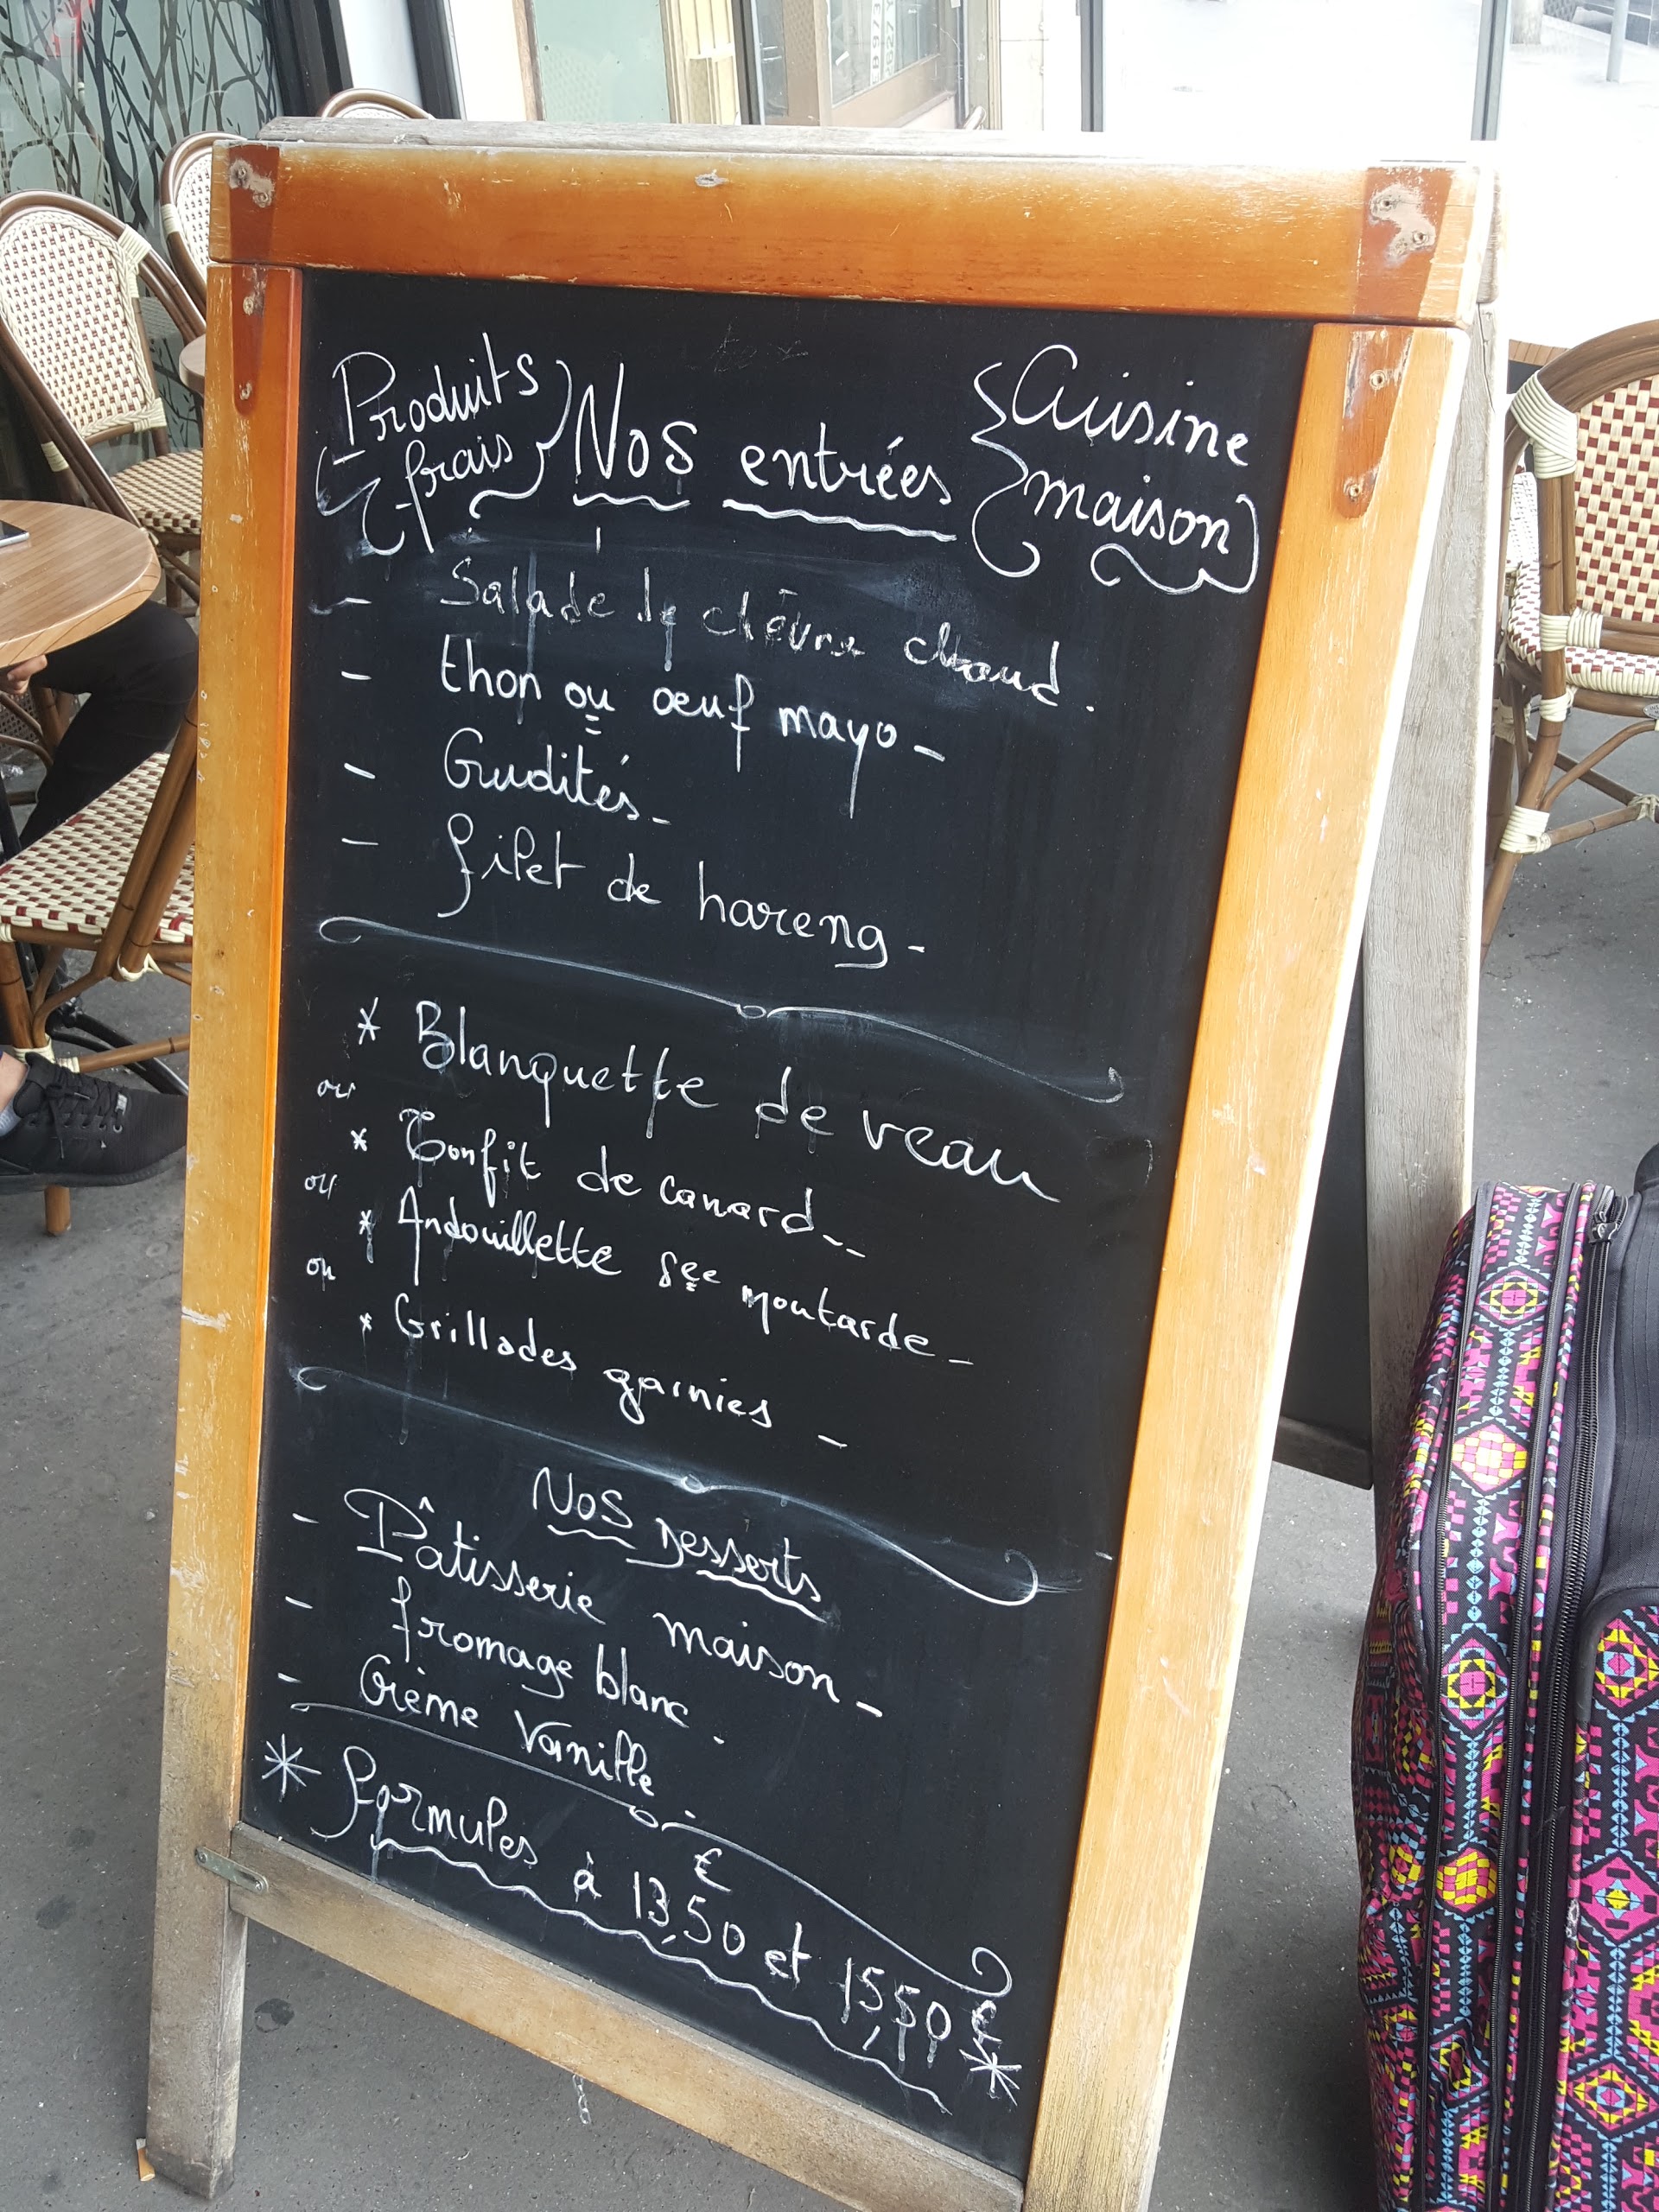 Produits
frais
Nos entrées
Cuisine
maison
- Salade de chèvre chaud.
- thon ou oeuf mayo -
- Crudités -
- filet de hareng -
* Blanquette de veau
ou
* Confit de canard --
ou
* Andouillette sce moutarde -
ou
* Grillades garnies -
Nos Desserts
- Pâtisserie maison -
- fromage blanc.
- Crème Vanille.
* formules à 13,50 € et 15,50 € *